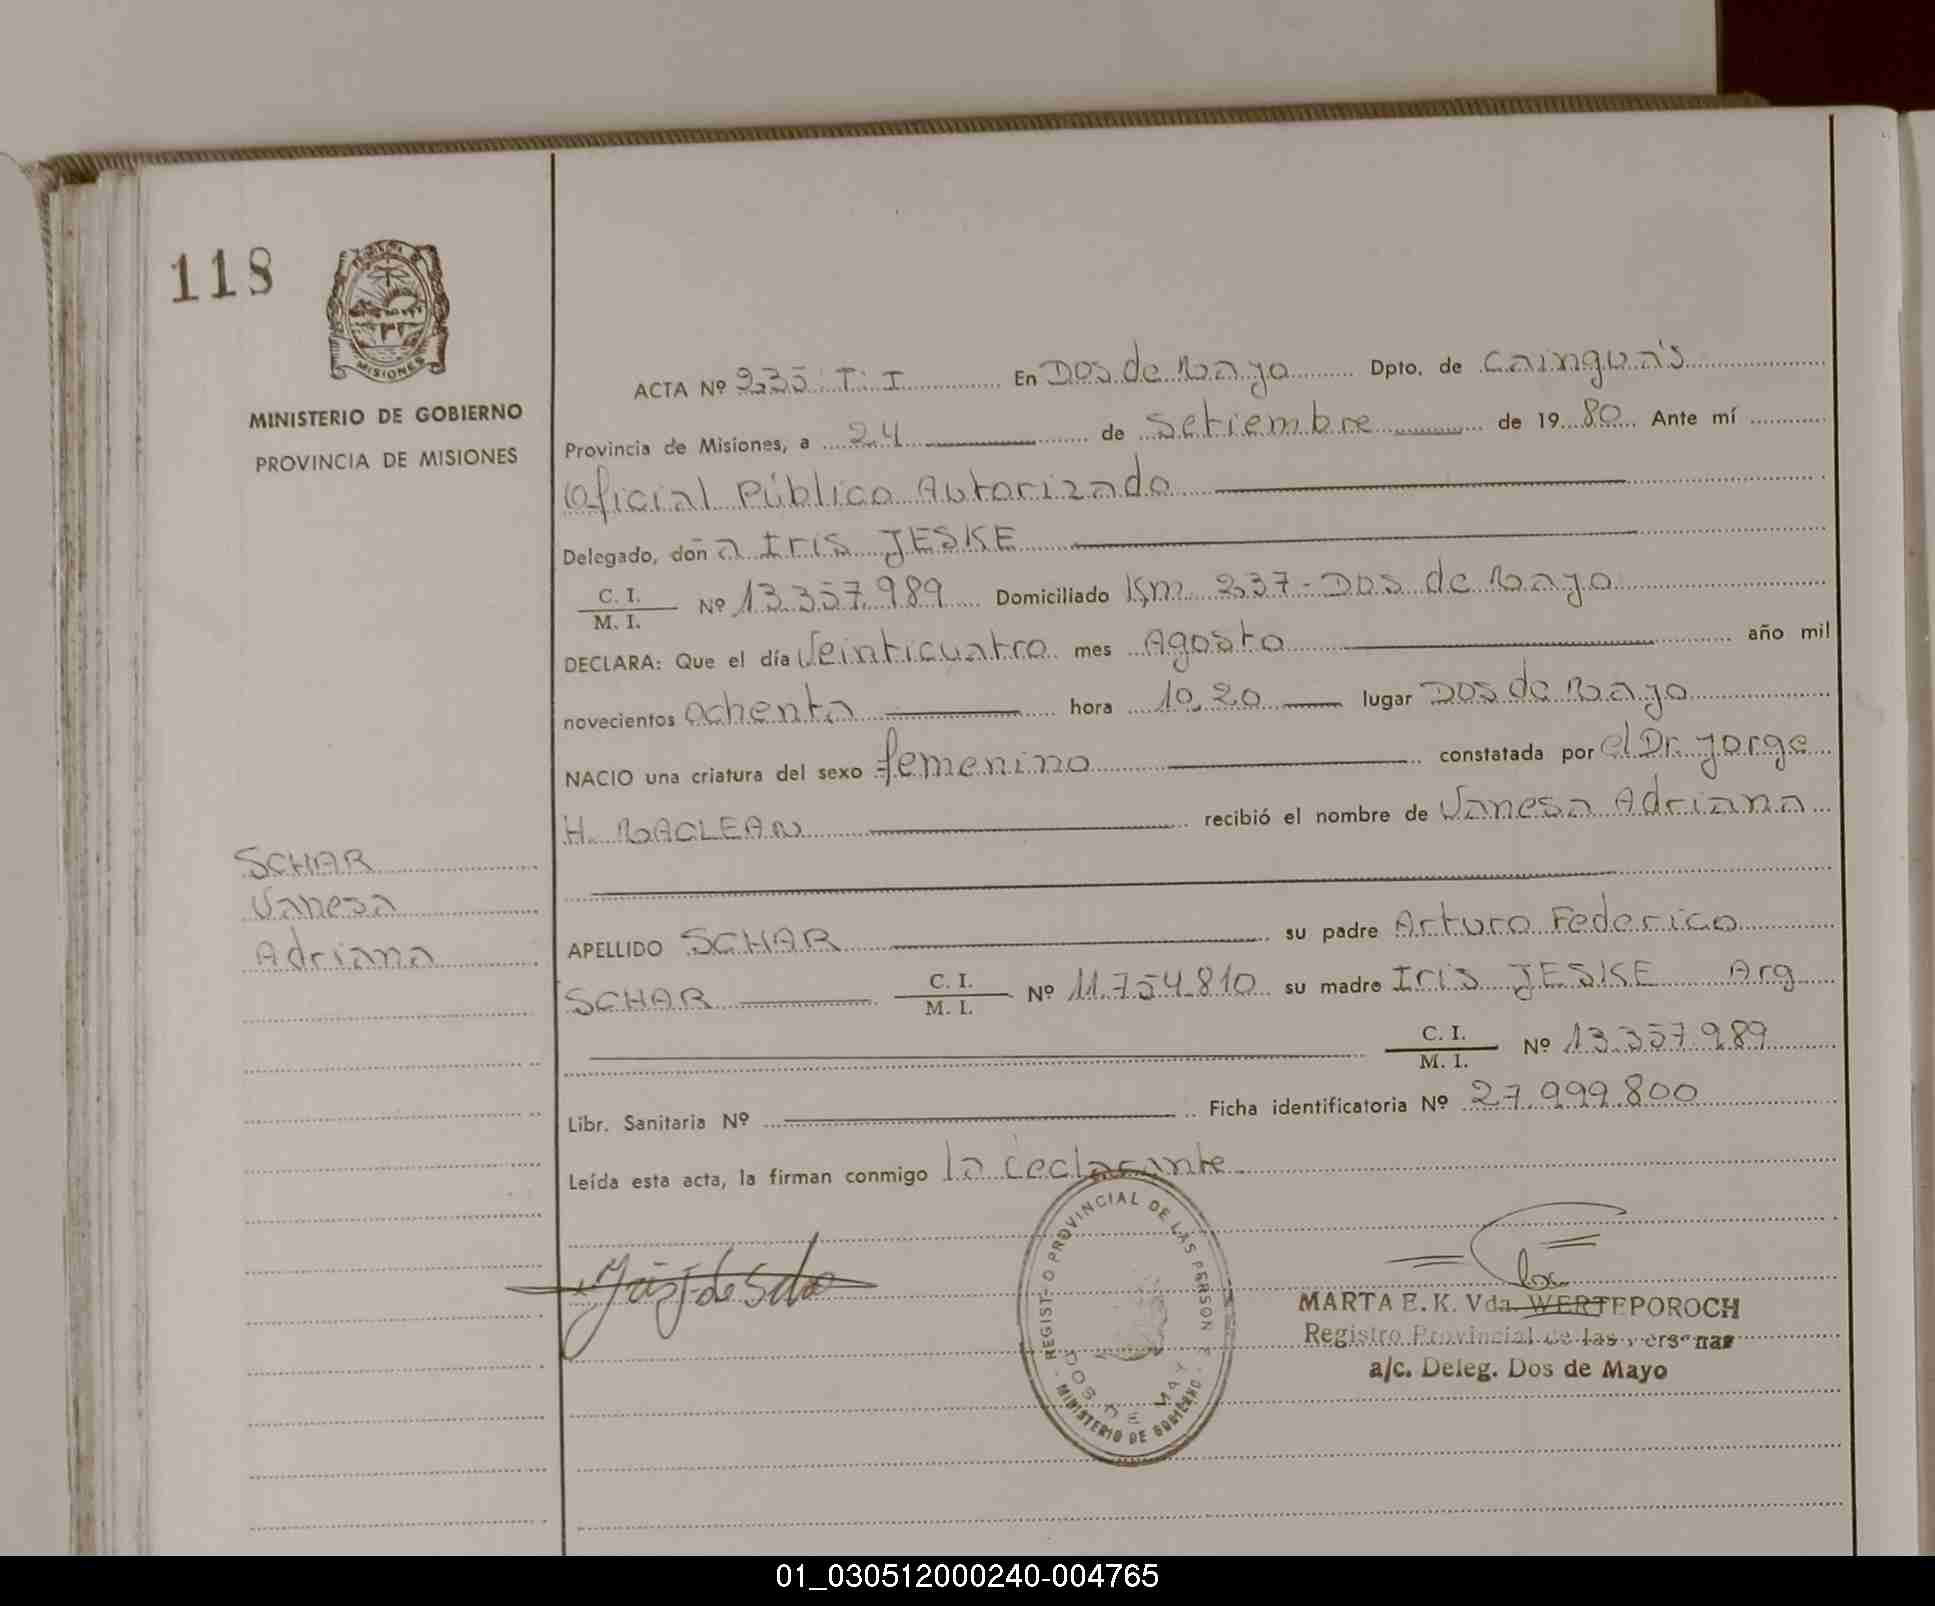 118
MISIONES
MINISTERIO DE GOBIERNO
PROVINCIA DE MISIONES
SCHAR
Vanesa
Adriana
ACTA Nº 235 T: I En Dos de Mayo Dpto. de Cainguá's
Provincia de Misiones, a 24 de Setiembre de 19 80 Ante mí
Oficial Público Autorizado
Delegado, doña Iris JESKE
C. I.
M. I. Nº 13.357.989 Domiciliado Km 237 - Dos de Mayo
DECLARA: Que el día Veinticuatro mes Agosto año mil
novecientos ochenta hora 10,20 lugar Dos de Mayo
NACIO una criatura del sexo femenino constatada por el Dr. Jorge
H. MACLEAN recibió el nombre de Vanesa Adriana
APELLIDO SCHAR su padre Arturo Federico
SCHAR C. I.
M. I. Nº 11.754.810 su madre Iris JESKE Arg
C. I.
M. I. Nº 13.357.989
Libr. Sanitaria Nº Ficha identificatoria Nº 27.999.800
Leída esta acta, la firman conmigo la ceclarante
REGISTRO PROVINCIAL DE LAS PERSON
DOS DE MAYO
MINISTERIO DE GOBIERNO
MARTA E. K. Vda. WERTEPOROCH
Registro Provincial de las Personas
a/c. Deleg. Dos de Mayo
01_030512000240-004765